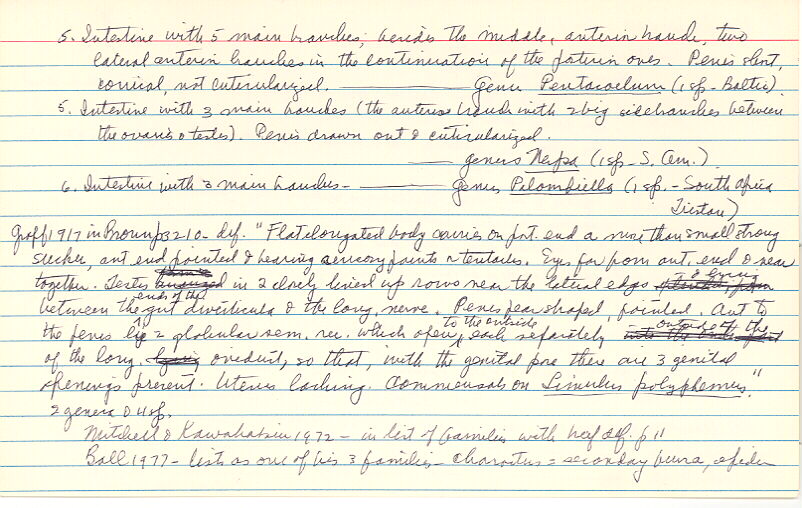 5. Intestine with 5 main branches; besides the middle, anterior branch, two
lateral anterior branches in the continuation of the posterior ones. Penis short,
conical, not cuticularized. ———— Genus Pentacoelum (1 sp - Baltic)
5. Intestine with 3 main branches (the anterior branch with 2 big side branches between
the ovaries & testes). Penis drawn out & cuticularized.
—— genus Nexpa (1 sp - S. Am.)
6. Intestine with 3 main branches - ———— Genus Palombiella (1 sp. - South Africa
Tristan)
Graff 1917 in Bronn p3210 - def. "Flat elongated body carries on post. end a more than small strong
sucker, ant. end pointed & bearing sensory points or tentacles. Eyes far from ant. end & near
together. Testes in 2 closely lined up rows near the lateral edges & lying
between the ends of the gut diverticula & the long. nerve. Penis pear shaped, pointed. Ant. to
the penis lie 2 globular sem. rec. which open to the outside, each separately outside of the
of the long. oviduct, so that, with the genital pore there are 3 genital
openings present. Uterus lacking. Commensals on Limulus polyphemus."
2 genera & 4 sp.
Mitchell & Kawakatsu 1972 - in list of families with no def. p 11
Ball 1977 - lists as one of his 3 families - characters = secondary bursa,